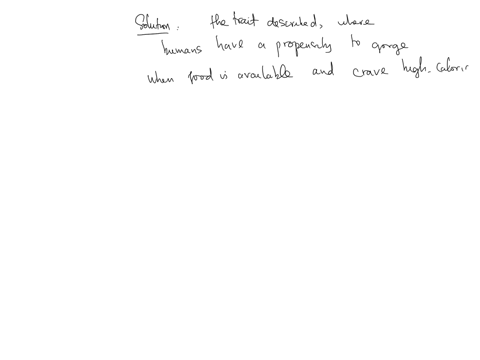 Solution. the trait described, where
humans have a propensity to gorge
when food is available and crave high-caloric